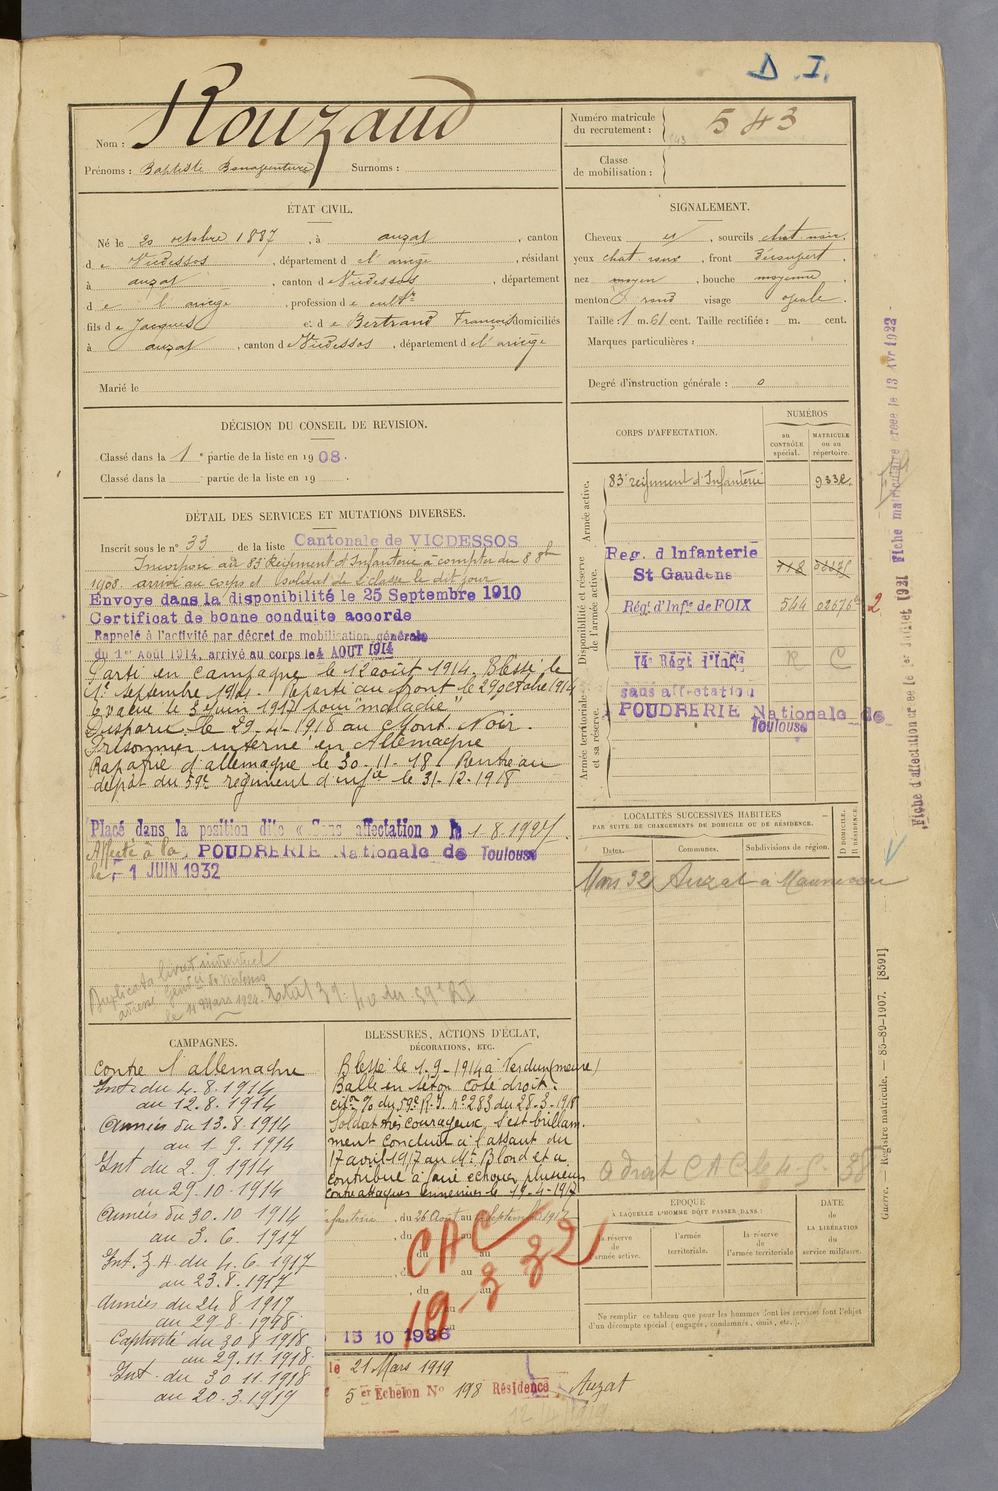 D.I.
Rouzaud
Nom :
Prénoms : Baptiste Bonaventure Surnoms :
Numéro matricule du recrutement : 543
Classe de mobilisation :
ÉTAT CIVIL.
Né le 20 octobre 1887, à auzat, canton
de Vicdessos, département de l'ariège, résidant
à auzat, canton de Vicdessos, département
de l'ariège, profession de cultr
fils de Jacques et de Bertrand Françoise domiciliés
à auzat, canton de Vicdessos, département de l'ariège
Marié le
SIGNALEMENT.
Cheveux et, sourcils chat. noir.
yeux chat. roux, front découvert,
nez moyen, bouche moyenne
menton rond visage ovale.
Taille : 1 m. 61 cent. Taille rectifiée : m. cent.
Marques particulières :
Degré d'instruction générale : 0
DÉCISION DU CONSEIL DE REVISION.
Classé dans la 1e partie de la liste en 1908.
Classé dans la partie de la liste en 19 .
DÉTAIL DES SERVICES ET MUTATIONS DIVERSES.
Inscrit sous le n° 33 de la liste Cantonale de VICDESSOS
Incorporé au 83e Régiment d'Infanterie à compter du 8 8bre
1908. arrivé au corps et soldat de 2e classe le dit jour
Envoyé dans la disponibilité le 25 Septembre 1910
Certificat de bonne conduite accordé
Rappelé à l'activité par décret de mobilisation générale
du 1er Août 1914, arrivé au corps le 4 AOUT 1914
Parti en Campagne le 12 août 1914. Blessé le
1er Septembre 1914. Reparti au front le 29 octobre 1914
Evacué le 3 Juin 1917 pour "maladie"
Disparu le 29-4-1918 au Mont Noir.
Prisonnier interné en Allemagne
Rapatrié d'allemagne le 30-11-18. Rentré au
dépôt du 59e régiment d'infie le 31-12-1918
Placé dans la position dite « Sans affectation » le 1-8-1927.
Affecté à la POUDRERIE Nationale de Toulouse
le 1 JUIN 1932
Duplicata livret individuel
le 11 Mars 1924.
CORPS D'AFFECTATION.
NUMÉROS
au CONTRÔLE spécial.
MATRICULE ou au répertoire.
Armée active.
83e régiment d'Infanterie 9332.
Disponibilité et réserve de l'armée active.
Reg. d'Infanterie
St Gaudens 718
Régt d'Infie de FOIX 544 02676 2
14e Régt d'Infie R C
Armée territoriale et sa réserve.
sans affectation
POUDRERIE Nationale de
Toulouse
LOCALITÉS SUCCESSIVES HABITÉES
PAR SUITE DE CHANGEMENTS DE DOMICILE OU DE RÉSIDENCE.
Dates. Communes. Subdivisions de région. D DOMICILE. R RÉSIDENCE.
Mars 32 Auzat à
a droit CAC le 4-5-38
CAMPAGNES.
Contre l'allemagne
Int. du 4.8.1914
au 12.8.1914
Armées du 13.8.1914
au 1-9.1914
Int du 2.9.1914
au 29.10.1914
Armées du 30.10.1914
au 3.6.1917
Int. Z A du 4.6.1917
au 23.8.1917
Armées du 24 8 1917
au 29.8.1918
Captivité du 30 8 1918
au 29.11.1918
Int. du 30 11.1918
au 20.3.1919
BLESSURES, ACTIONS D'ÉCLAT,
DÉCORATIONS, ETC.
Blessé le 1-9-1914 à Verdun (meuse)
Balle en séton côté droit.
citon % du 59e R.I. n° 283 du 28-3-1918
Soldat très courageux, s'est brillam-
ment conduit à l'assaut du
17 avril 1917 au Mt Blond et a
contribué à faire échouer plusieurs
contre attaques ennemies le 19-4-1917
Infanterie, du 26 Août au Septembre 1912
, du au
CAC
19-3 32
15 10 1936
le 21 Mars 1919
5 er Echelon N° 198 Résidence Auzat
ÉPOQUE
À LAQUELLE L'HOMME DOIT PASSER DANS :
la réserve de l'armée active.
l'armée territoriale.
la réserve de l'armée territoriale
DATE de LA LIBÉRATION du service militaire.
Ne remplir ce tableau que pour les hommes dont les services font l'objet
d'un décompte spécial (engagés, condamnés, omis, etc.).
Fiche d'affectation créée le 1er Juillet 1921 Fiche matriculaire créée le 13 Avr 1922
Guerre. — Registre matricule. — 85-89-1907. [8591]